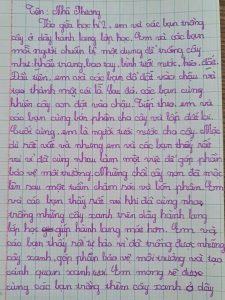 Tên: Nhã Phương
Vào giữa học kì 2, em và các bạn trồng
cây ở dãy hành lang lớp học. Em và các bạn
mỗi người chuẩn bị một dụng cụ để trồng cây
như: khẩu trang, bao tay, bình tưới nước, kéo, đất.
Đầu tiên, em và các bạn đổ đất vào chậu và
tạo thành một cái lỗ. Sau đó, các bạn cùng
khiêng cây con đặt vào chậu. Tiếp theo, em và
các bạn cùng bón phân cho cây và lấp đất lại.
Cuối cùng, em là người tưới nước cho cây. Mặc
dù rất vất vả nhưng em và các bạn thấy rất
vui vì đã cùng nhau làm một việc để góp phần
bảo vệ môi trường. Những chồi cây non đã mọc
lên sau một tuần chăm sóc và bón phân. Em
và các bạn thấy rất vui khi đã cùng nhau
trồng những cây xanh trên dãy hành lang
lớp học giúp hành lang mát hơn. Em và
các bạn thấy rất tự hào vì đã trồng được những
cây xanh, góp phần bảo vệ môi trường và tạo
cảnh quan xanh tươi. Em mong sẽ được
cùng các bạn trồng thêm cây xanh ở dãy